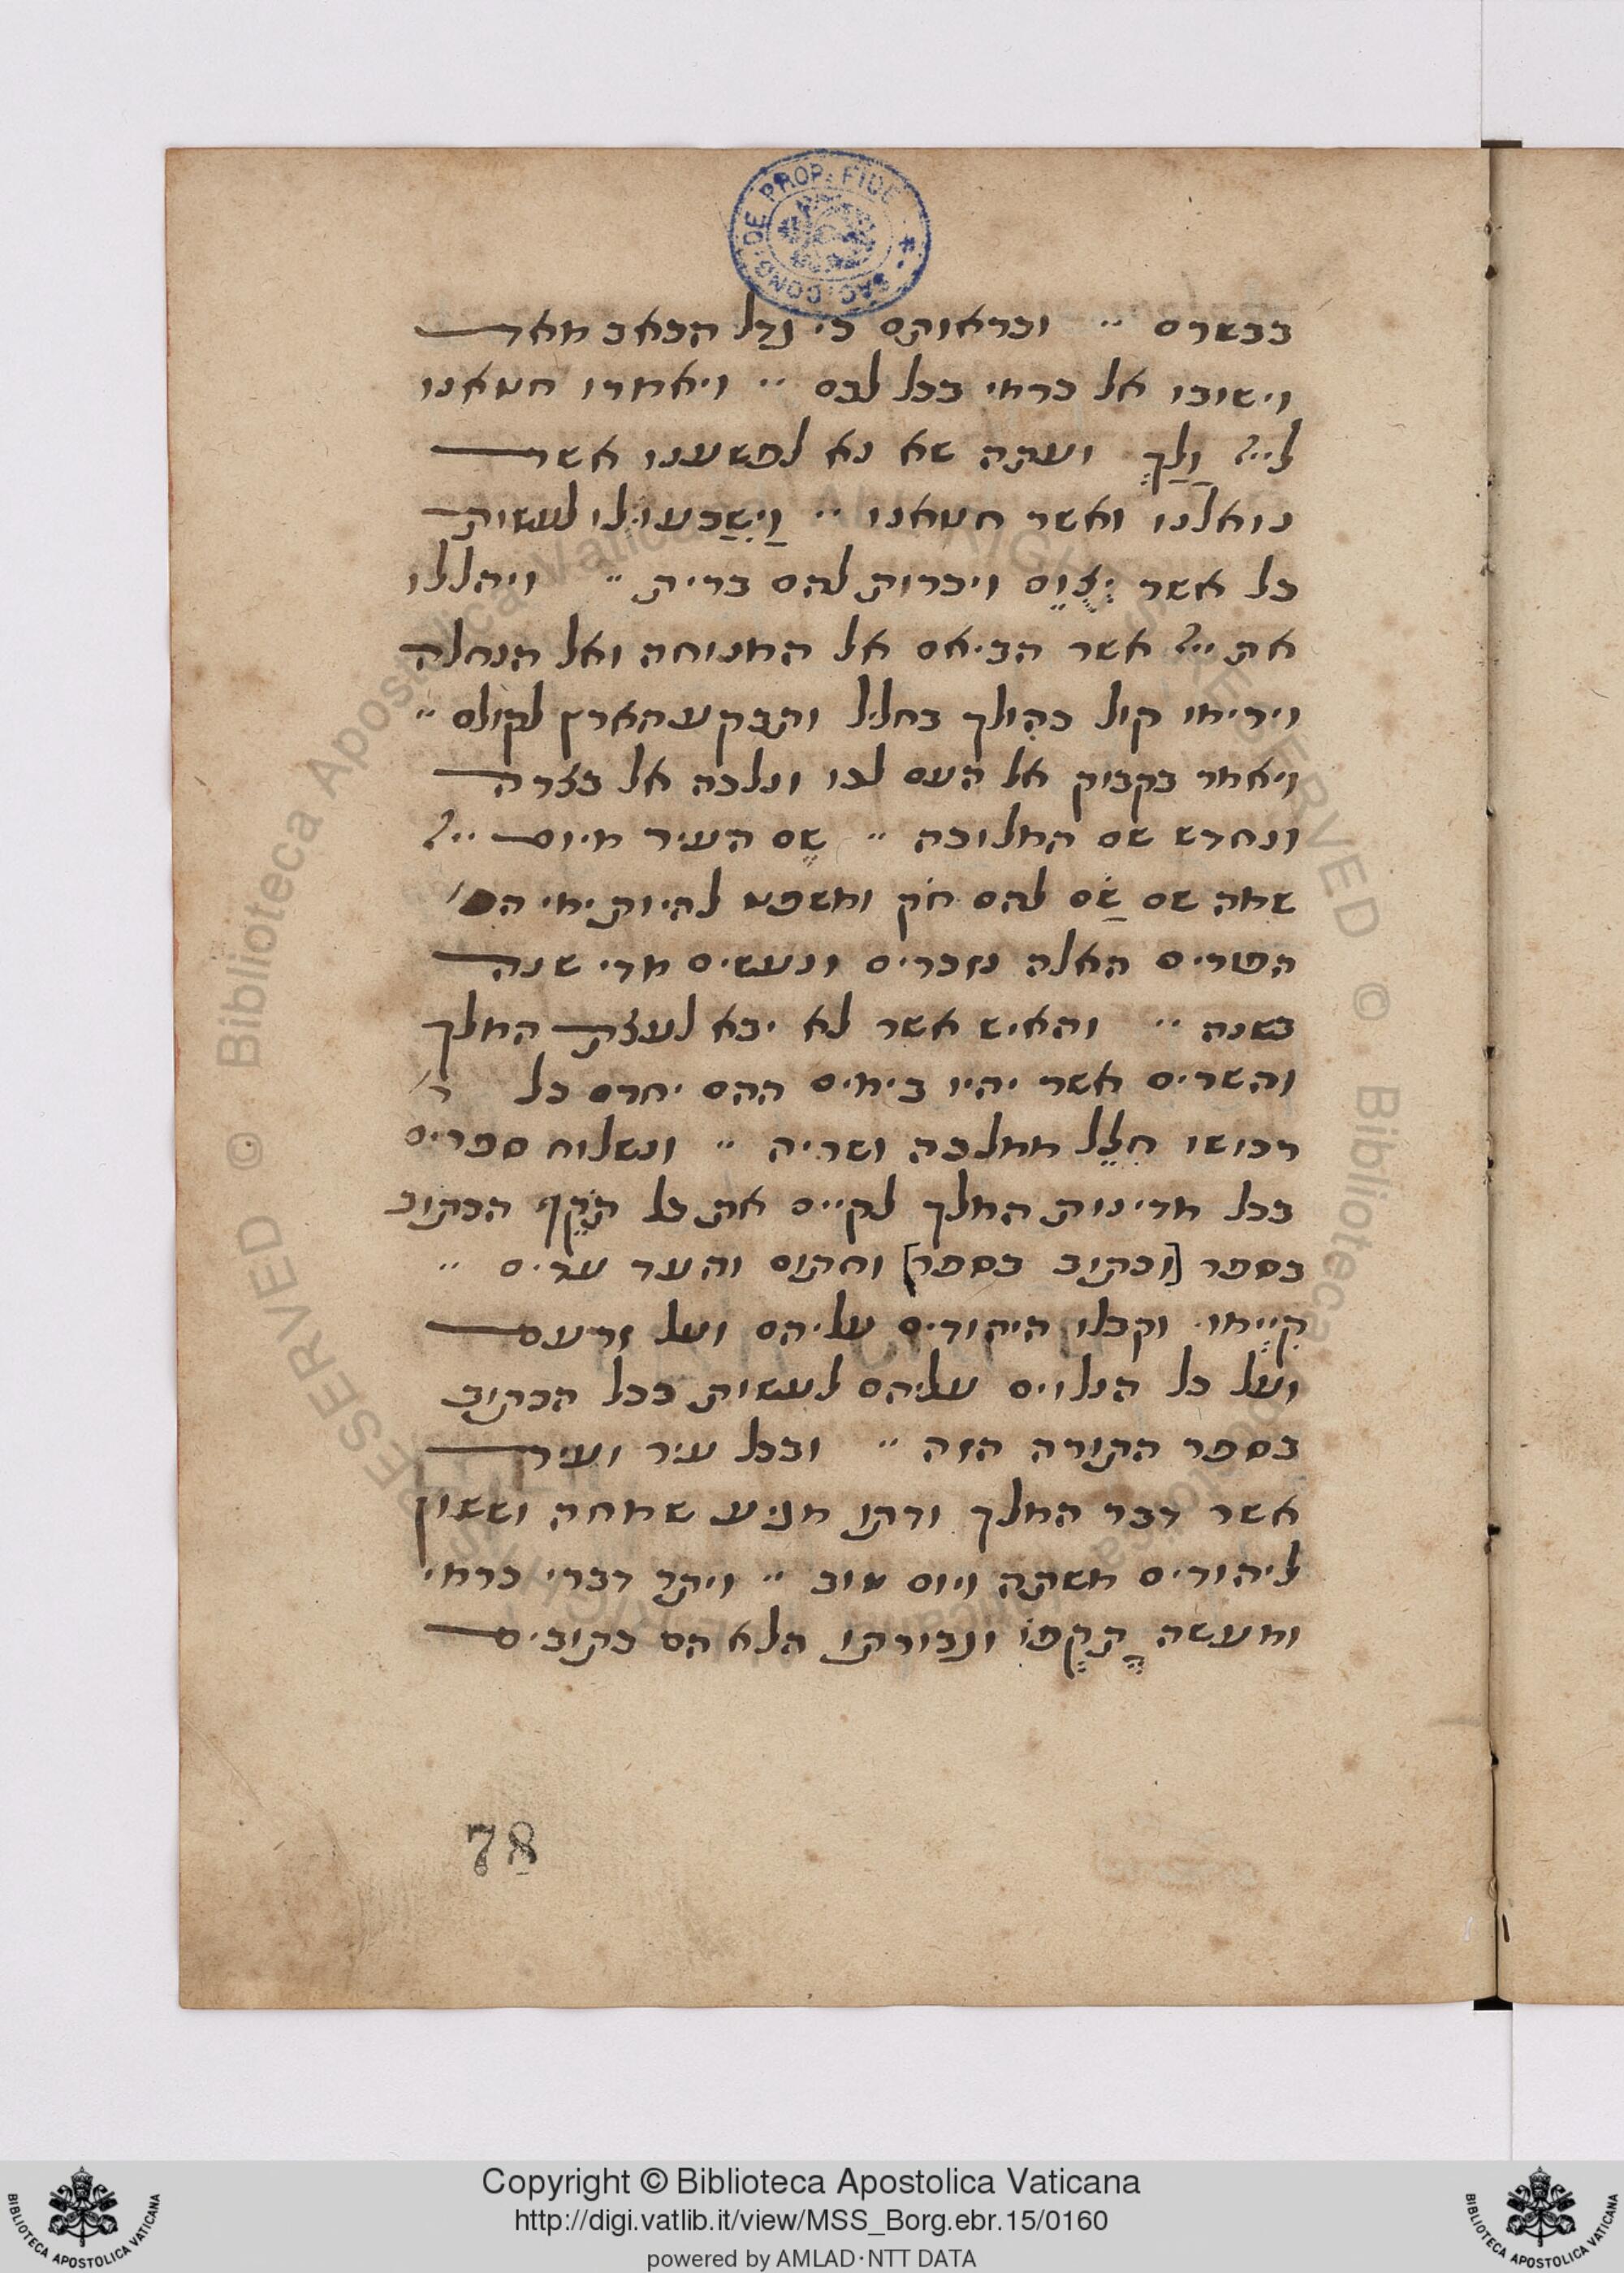 בבשרם ״ ובראותם כי גדל הכאב מאד
וישובו אל כרמי בכל לבם ״ ויאמרו חטאנו
לייי וָלָךְ ועתה שא נא לפשענו אשר
נואלנו ואשר חטאנו ״ וַיִשָבעו לו לעשות
כל אשר יְצַוֵם ויכרות להם ברית ״ ויהללו
את ייי אשר הביאם אל המנוחה ואל הנחלה
וירימו קול כהולך בחליל ותבקע הארץ לקולם ״
ויאמר בקבוק אל העם לכו ונלכה אל בצרה
ונחדש שם המלוכה ״ שֵם העיר מיום ייי
שמה שם שָׂם להם חֹק ומשפט להיות ימי
הפורים האלה נזכרים ונעשים מדי שנה
בשנה ״ והאיש אשר לא יבא לעצת המלך
והשרים אשר יהיו בימים ההם יחרם כל ר׳
רכושו חִלֵל ממלכה ושריה ״ ונשלוח ספרים
בכל מדינות המלך לקיים את כל תֹקֶף הכתוב
בספר [וכתוב בספר] וחתום והעד עדים ״
קִיְימו וקבלו היהודים עליהם ועל זרעם
ועל כל הנלוים עליהם לעשות ככל הכתוב
בספר התורה הזה ״ ובכל עיר ועיר
אשר דבר המלך ודתו מגיע שמחה וששון
ליהודים משתה ויום טוב ״ ויתר דברי כרמי
ומעשה תָקְפוֹ וגבורתו הלא הם כתובים
78
SAC·CONG·DE PROP·FIDE
Copyright © Biblioteca Apostolica Vaticana
http://digi.vatlib.it/view/MSS_Borg.ebr.15/0160
powered by AMLAD·NTT DATA
BIBLIOTECA APOSTOLICA VATICANA
BIBLIOTECA APOSTOLICA VATICANA